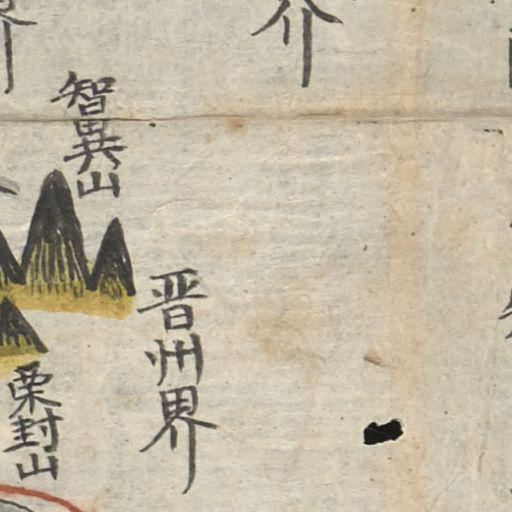 界
智異山
晋州界
栗封山